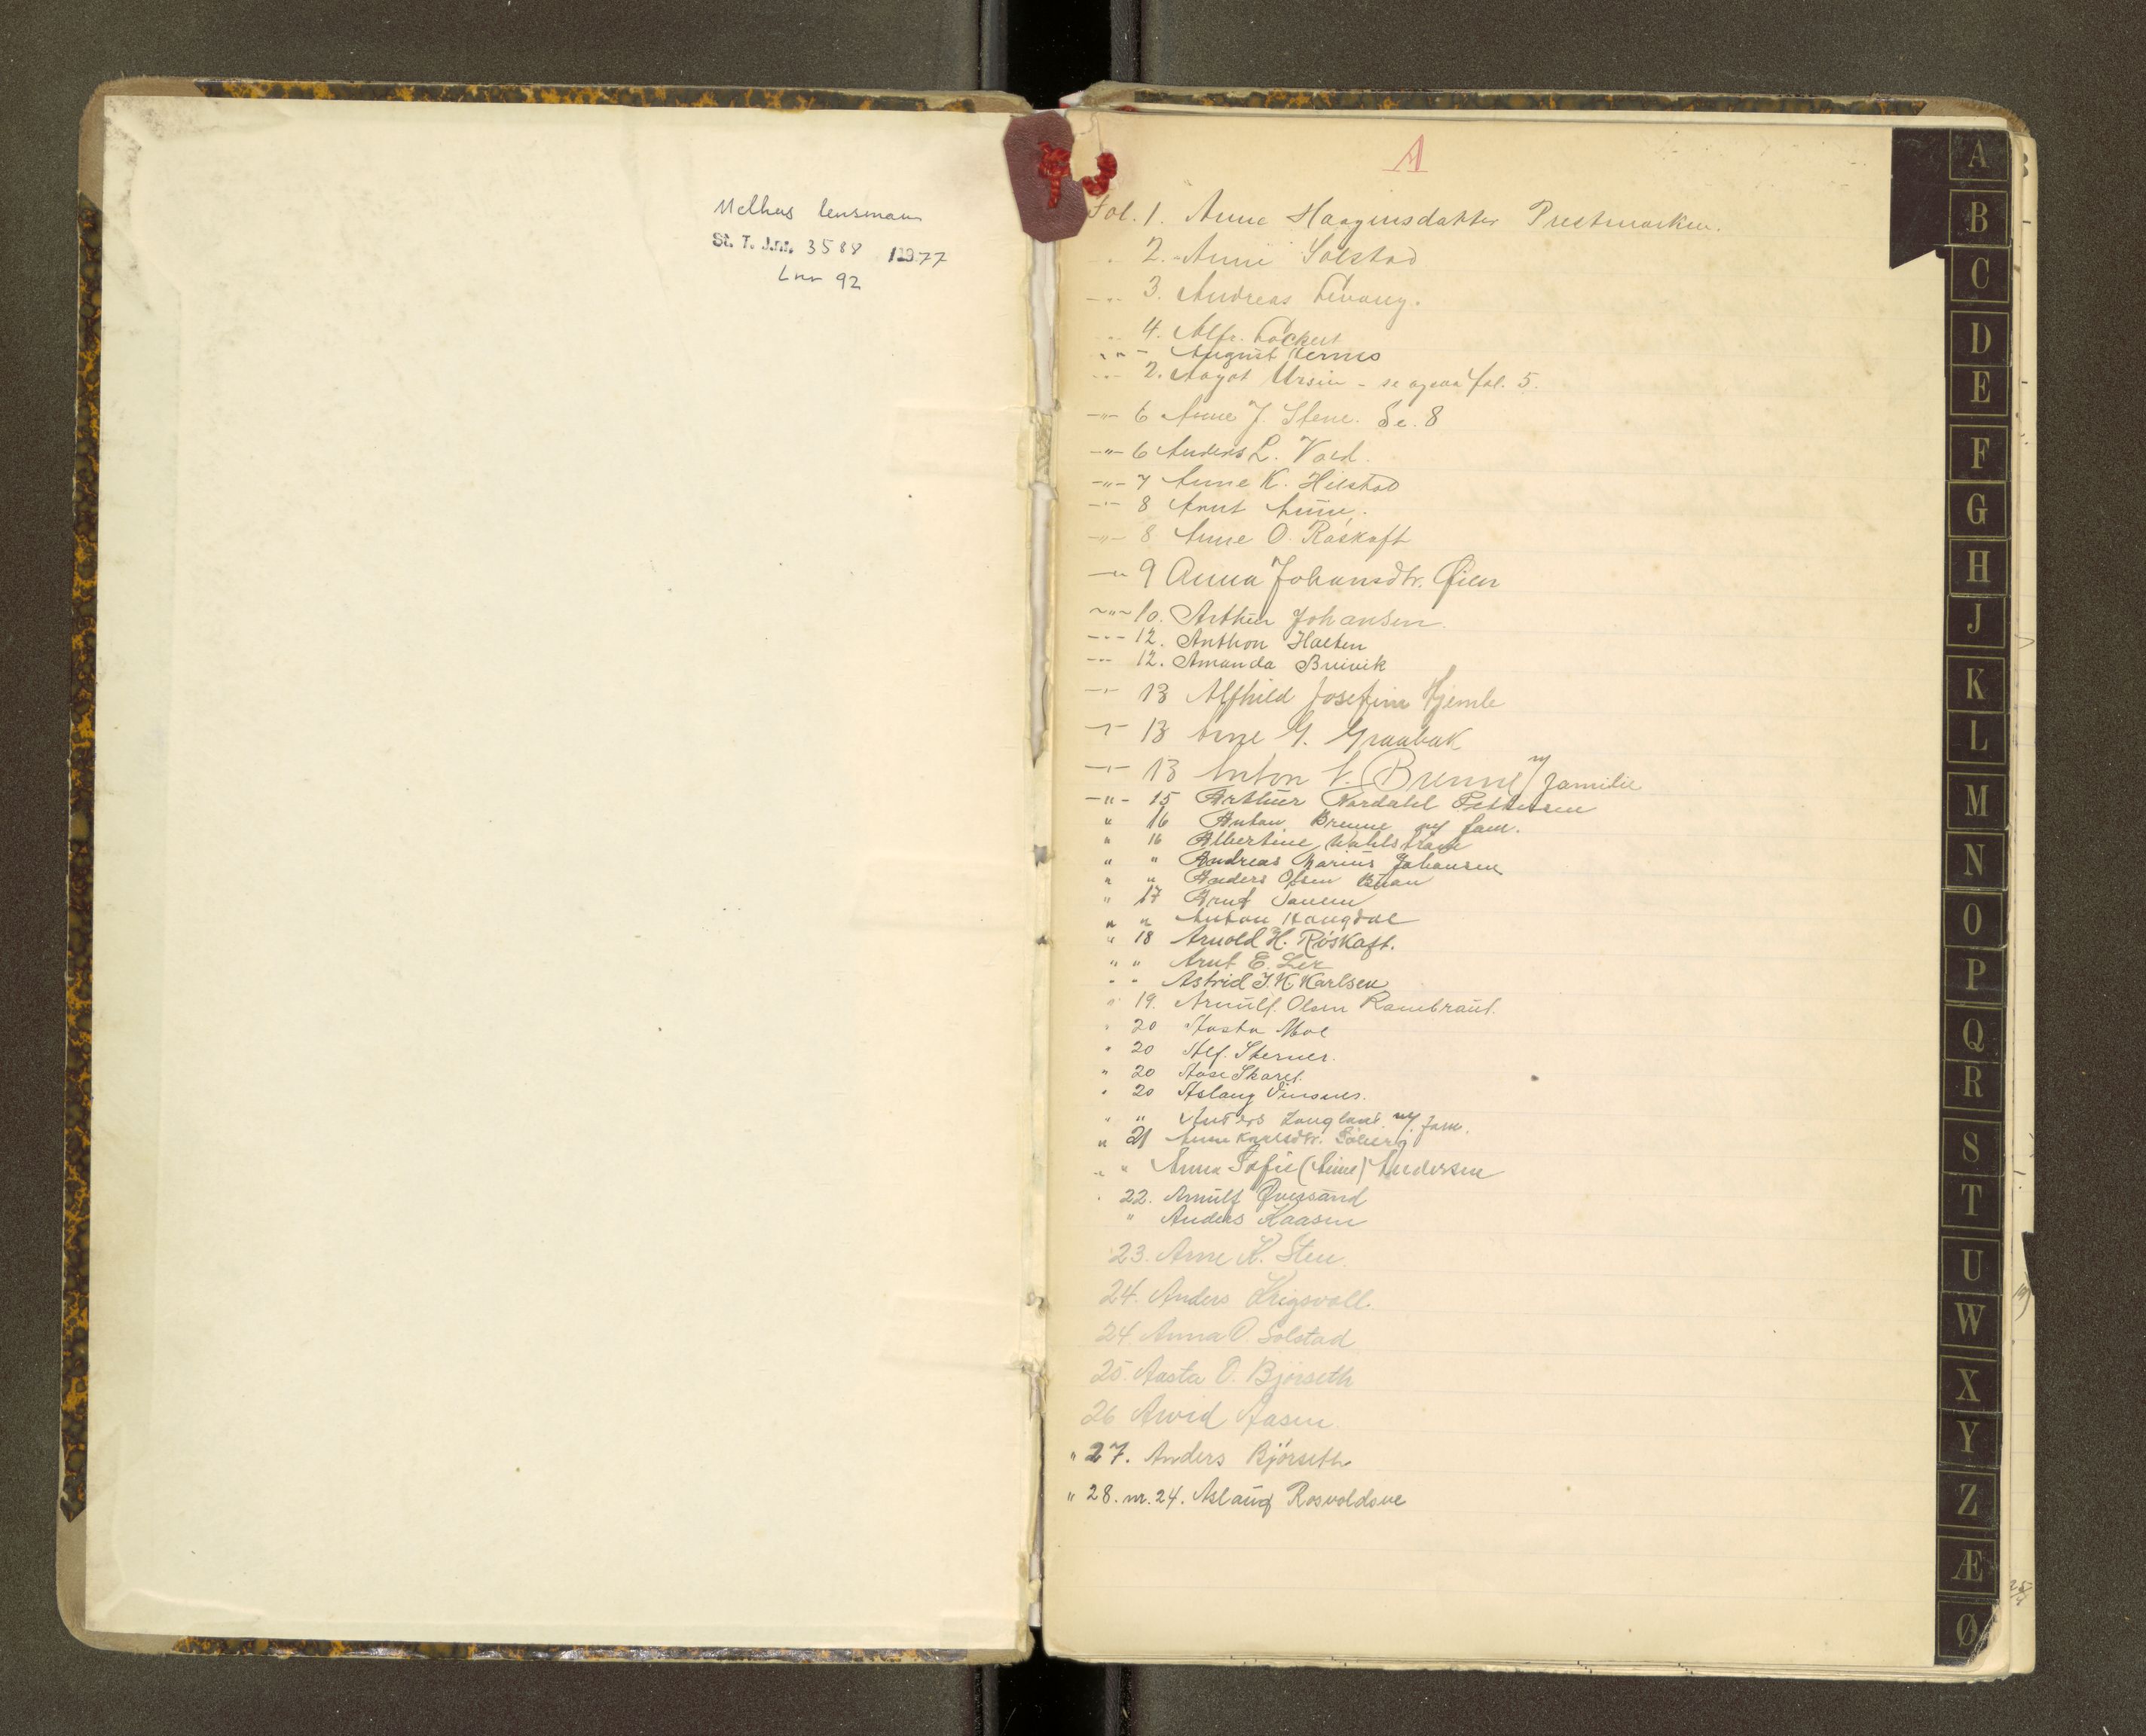 Melhus lensmann
St. T. J.nr. 3588 1977
Lnr 92
A
Fol. 1. Anne Haagensdatter Prestmarken.
2. Anne Solstad
3. Andreas
4. Alfr. Lockert
" " August
2. Aagot Ursin - se ogsaa fol. 5.
-"- 6 Anne J. Stene. Se. 8
-"- 6 Anders L. Vold.
-"- 7 Anne K. Hilstad
-"- 8 Arnt Aune.
-"- 8 Anne O. Röskaft
-"- 9 Anna Johansdtr. Øien
-"- 10. Arthur Johansen.
-"- 12. Anthon Halten
-"- 12. Amanda Bruvik
-"- 13 Alfhild Josefine Hjemle
-"- 13 Arne G. Graabak
-"- 13 Anton Brenne m/ familie
-"- 15 Arthur Nordahl Pettersen
" 16 Anton Brenne m/ fam.
" 16 Albertine Wahlstrøm
" " Andreas Marius Johansen
" " Anders Olsen Buan
" 17 Arnt Sanem
" " Anton Haugdal
" 18 Arnold H. Röskaft.
" " Arnt E. Ler
" " Astrid J. K Karlsen
" 19. Arnulf Olsen Rambraut.
" 20 Aasta Moe
" 20 Alf. Sterner.
" 20 Aase Skaret.
" 20 Aslaug Vinsnes.
" " Anders Langland m/ fam.
" 21 Anne Karlsdtr. Solberg
" " Anna Sofie (Aune) Andersen
" 22. Arnulf Qvessand
" Anders Kaasen
23. Arne K. Sten.
24. Anders Krigsvoll.
24. Anna O. Solstad
25. Aasta O. Bjørseth
26 Arvid Aasen.
" 27. Anders Björseth
" 28. nr. 24. Aslaug Rosvoldsve
A
B
C
D
E
F
G
H
J
K
L
M
N
O
P
Q
R
S
T
U
W
X
Y
Z
Æ
Ø